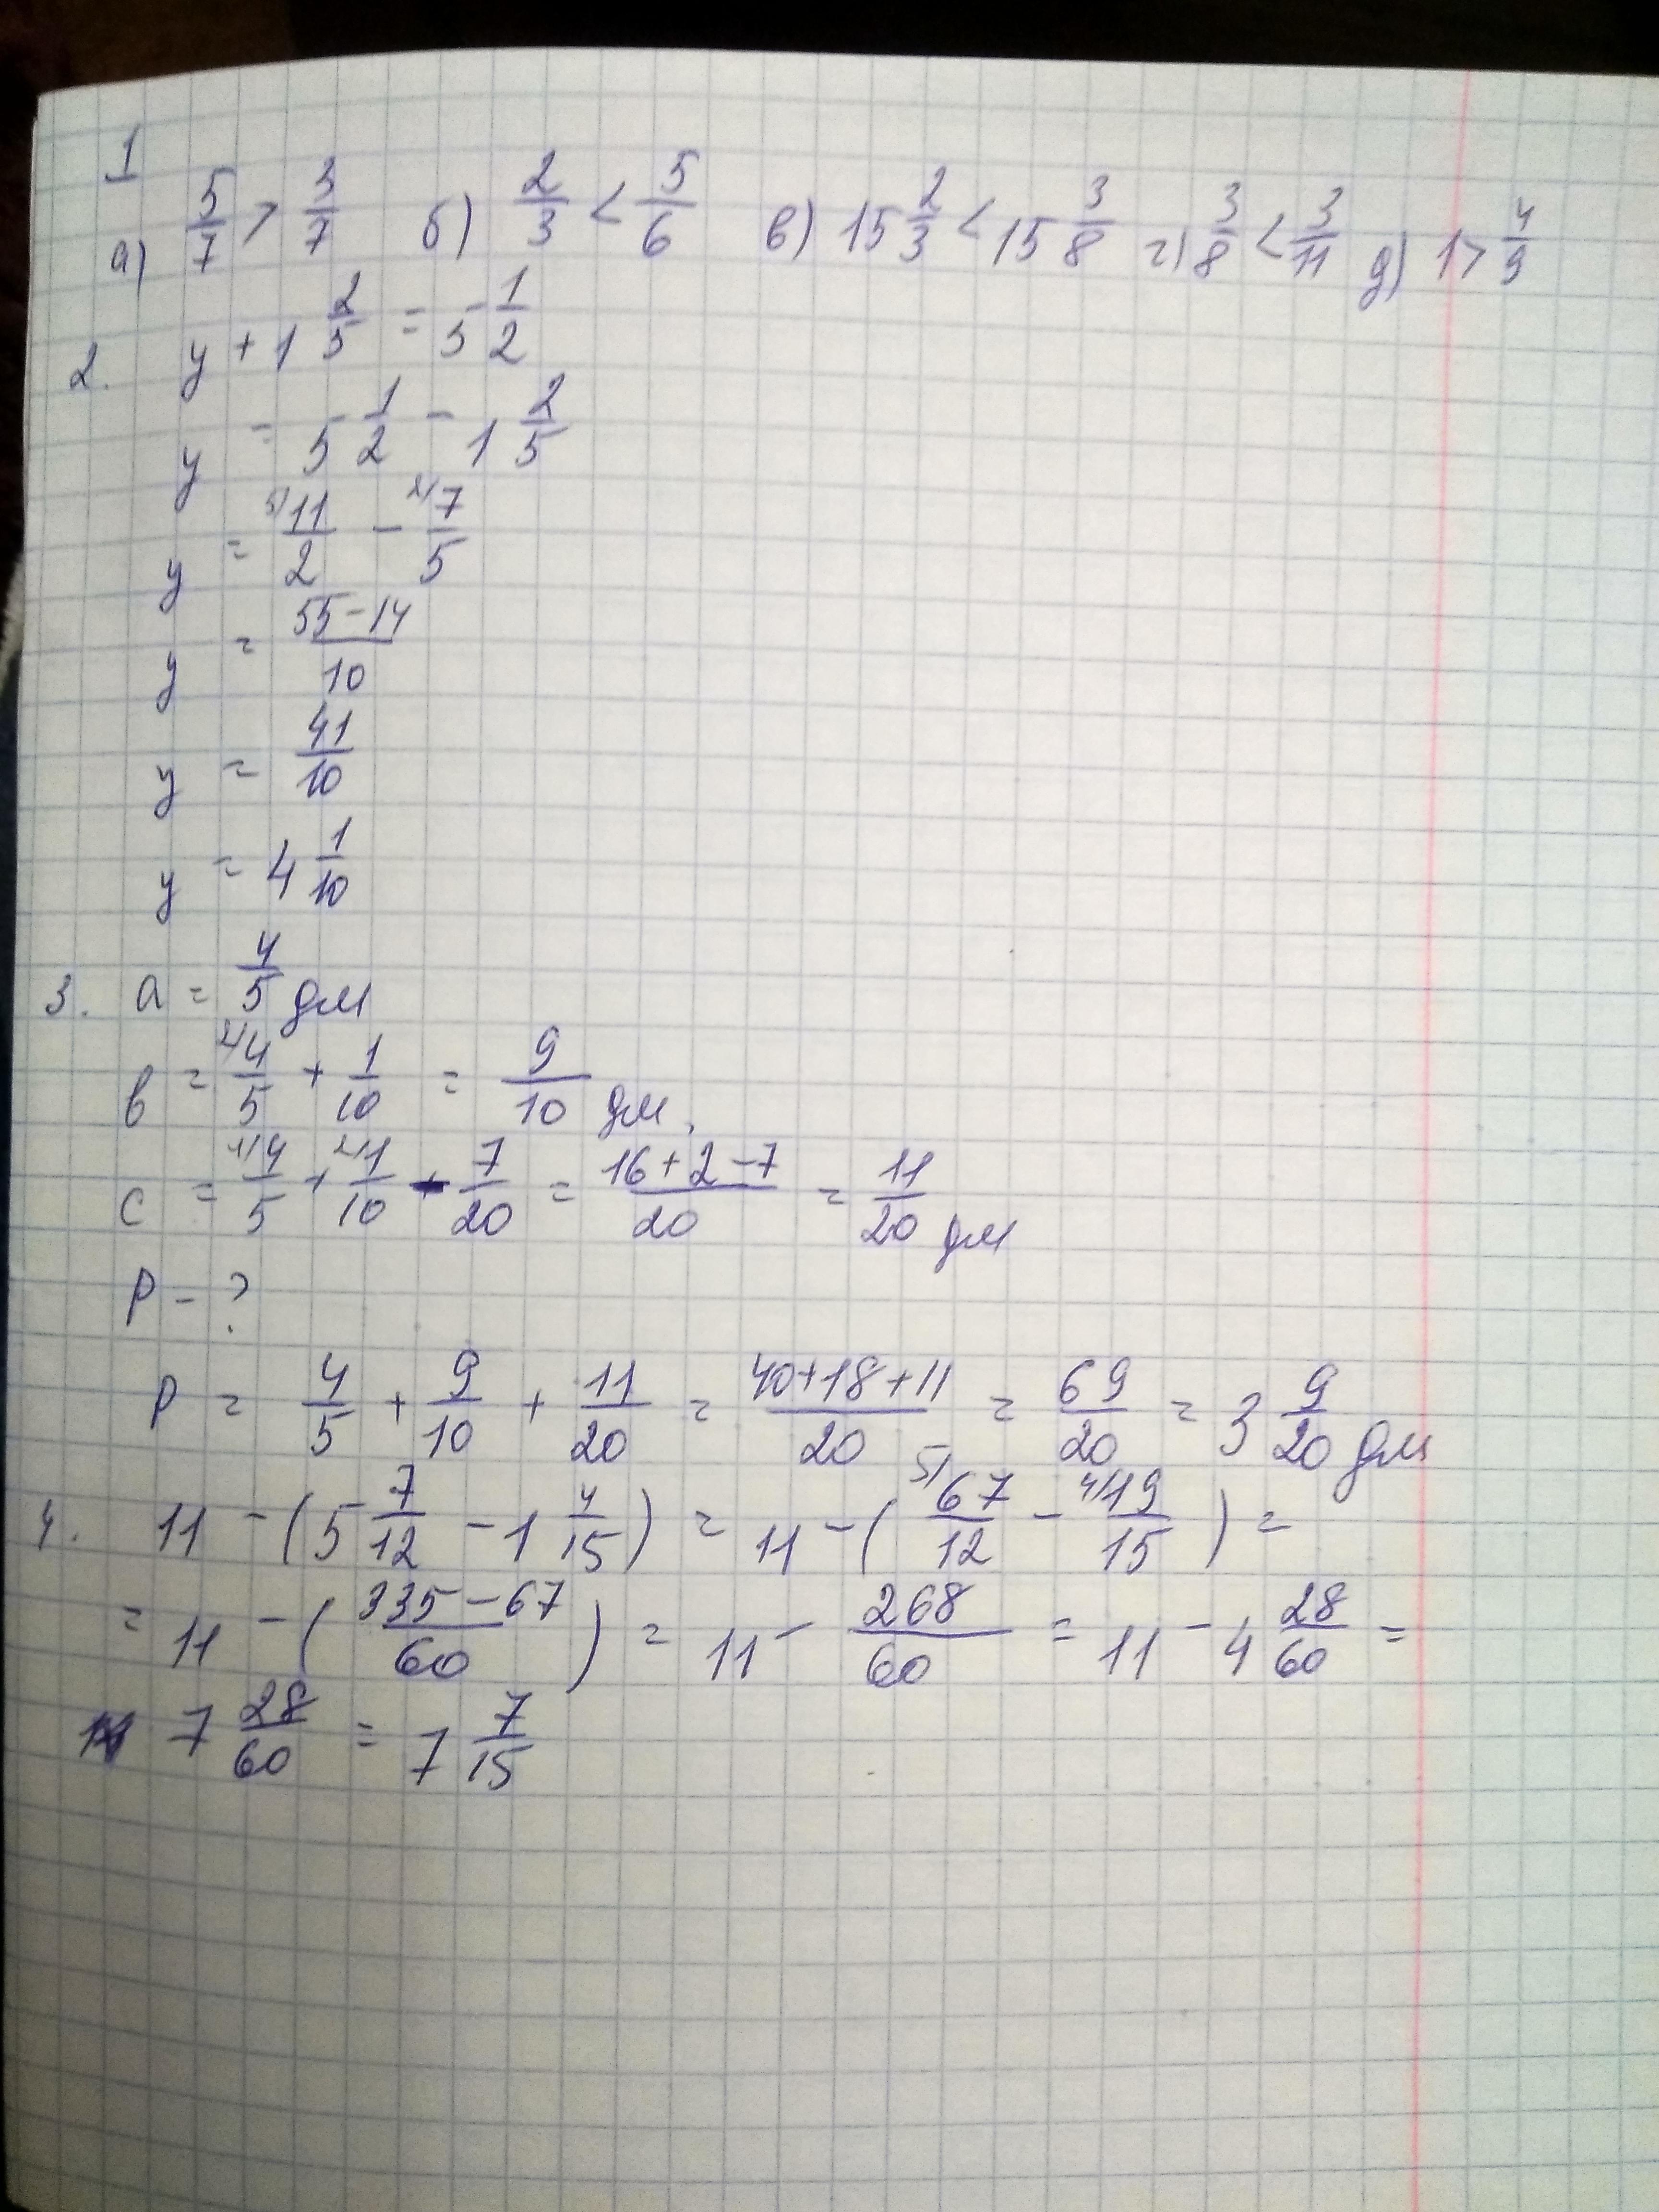 1
а) 5/7 > 3/7 б) 2/3 < 5/6 в) 15 2/3 < 15 3/8 г) 3/8 < 3/11 д) 1 > 4/9
2. y + 1 2/5 = 5 1/2
y = 5 1/2 - 1 2/5
y = 5/ 11/2 - 2/ 7/5
y = 55-14/10
y = 41/10
y = 4 1/10
3. a = 4/5 дм
в = 2/ 4/5 + 1/10 = 9/10 дм.
c = 4/ 4/5 + 2/ 1/10 - 7/20 = 16+2-7/20 = 11/20 дм
P - ?
P = 4/5 + 9/10 + 11/20 = 40+18+11/20 = 69/20 = 3 9/20 дм
4. 11 - (5 7/12 - 1 4/15) = 11 - (5/ 67/12 - 4/ 19/15) =
= 11 - (335-67/60) = 11 - 268/60 = 11 - 4 28/60 =
7 28/60 = 7 7/15